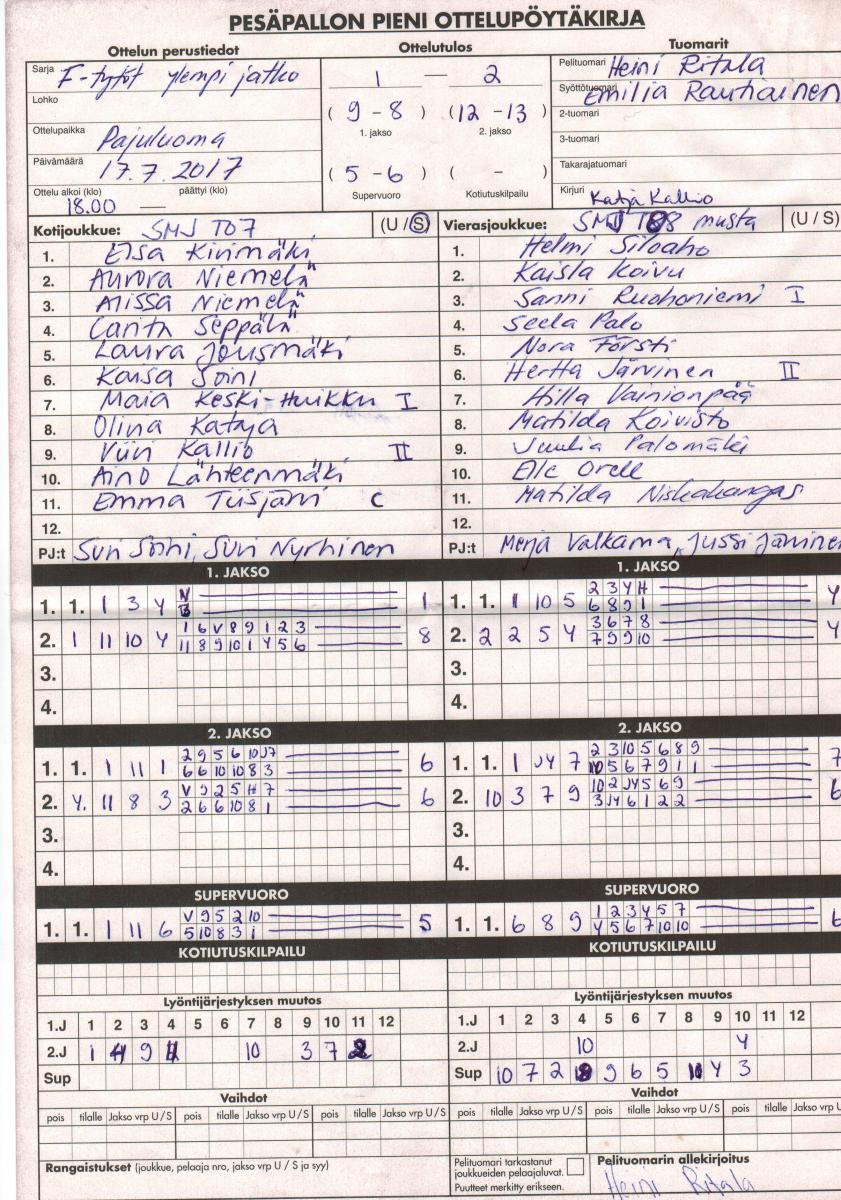 PESÄPALLON PIENI OTTELUPÖYTÄKIRJA
Ottelun perustiedot Ottelutulos Tuomarit
Sarja F-tytöt ylempi jatko
Lohko
Ottelupaikka Pajuluoma
Päivämäärä 17.7.2017
Ottelu alkoi (klo) päättyi (klo)
18.00 —
1 — 2
( 9 - 8 ) ( 12 - 13 )
1. jakso 2. jakso
( 5 - 6 ) ( - )
Supervuoro Kotiutuskilpailu
Pelituomari Heini Ritala
Syöttötuomari Emilia Rautiainen
2-tuomari
3-tuomari
Takarajatuomari
Kirjuri Katja Kallio
Kotijoukkue: SMJ T07 (U / S)
1. Elsa Kirimäki
2. Aurora Niemelä
3. Alissa Niemelä
4. Carita Seppälä
5. Laura Jousmäki
6. Kaisa Soini
7. Maia Keski-Huikku I
8. Olina Kataja
9. Viivi Kallio II
10. Aino Lähteenmäki
11. Emma Tiisjärvi C
12.
PJ:t Suvi Soini, Suvi Nyrhinen
Vierasjoukkue: SMJ T08 musta (U / S)
1. Helmi Siloaho
2. Kaisla Koivu
3. Sanni Ruohoniemi I
4. Seela Palo
5. Nora Försti
6. Hertta Järvinen II
7. Hilla Vainionpää
8. Matilda Koivisto
9. Juulia Palomäki
10. Elle Orell
11. Matilda Niskakangas
12.
PJ:t Merja Valkama, Jussi Järvinen
1. JAKSO 1. JAKSO
1. 1. 1 3 4 1
2. 1 11 10 4 1 6 V 8 9 1 2 3 8
11 8 9 10 1 4 5 6
3.
4.
1. 1. 1 10 5 2 3 4 H 4
6 8 9 1
2. 2 2 5 4 3 6 7 8 4
7 9 9 10
3.
4.
2. JAKSO 2. JAKSO
1. 1. 1 11 1 2 9 5 6 10 J7 6
6 6 10 10 8 3
2. 4. 11 8 3 V 9 2 5 H 7 6
2 6 6 10 8 1
3.
4.
1. 1. 1 J4 7 2 3 10 5 6 8 9 7
10 5 6 7 9 1 1
2. 10 3 7 9 10 2 J4 5 6 9 6
3 J4 6 1 2 2
3.
4.
SUPERVUORO SUPERVUORO
1. 1. 1 11 6 V 9 5 2 10 5
5 10 8 3 1
1. 1. 6 8 9 1 2 3 4 5 7 6
4 5 6 7 10 10
KOTIUTUSKILPAILU KOTIUTUSKILPAILU
Lyöntijärjestyksen muutos
1.J 1 2 3 4 5 6 7 8 9 10 11 12
2.J 1 9 10 3 7 2
Sup
Vaihdot
pois tilalle Jakso vrp U / S pois tilalle Jakso vrp U / S pois tilalle Jakso vrp U / S
Rangaistukset (joukkue, pelaaja nro, jakso vrp U / S ja syy)
Lyöntijärjestyksen muutos
1.J 1 2 3 4 5 6 7 8 9 10 11 12
2.J 10 4
Sup 10 7 2 9 6 5 4 3
Vaihdot
pois tilalle Jakso vrp U / S pois tilalle Jakso vrp U / S pois tilalle Jakso vrp U
Pelituomari tarkastanut
joukkueiden pelaajaluvat.
Puutteet merkitty erikseen.
Pelituomarin allekirjoitus
Heini Ritala